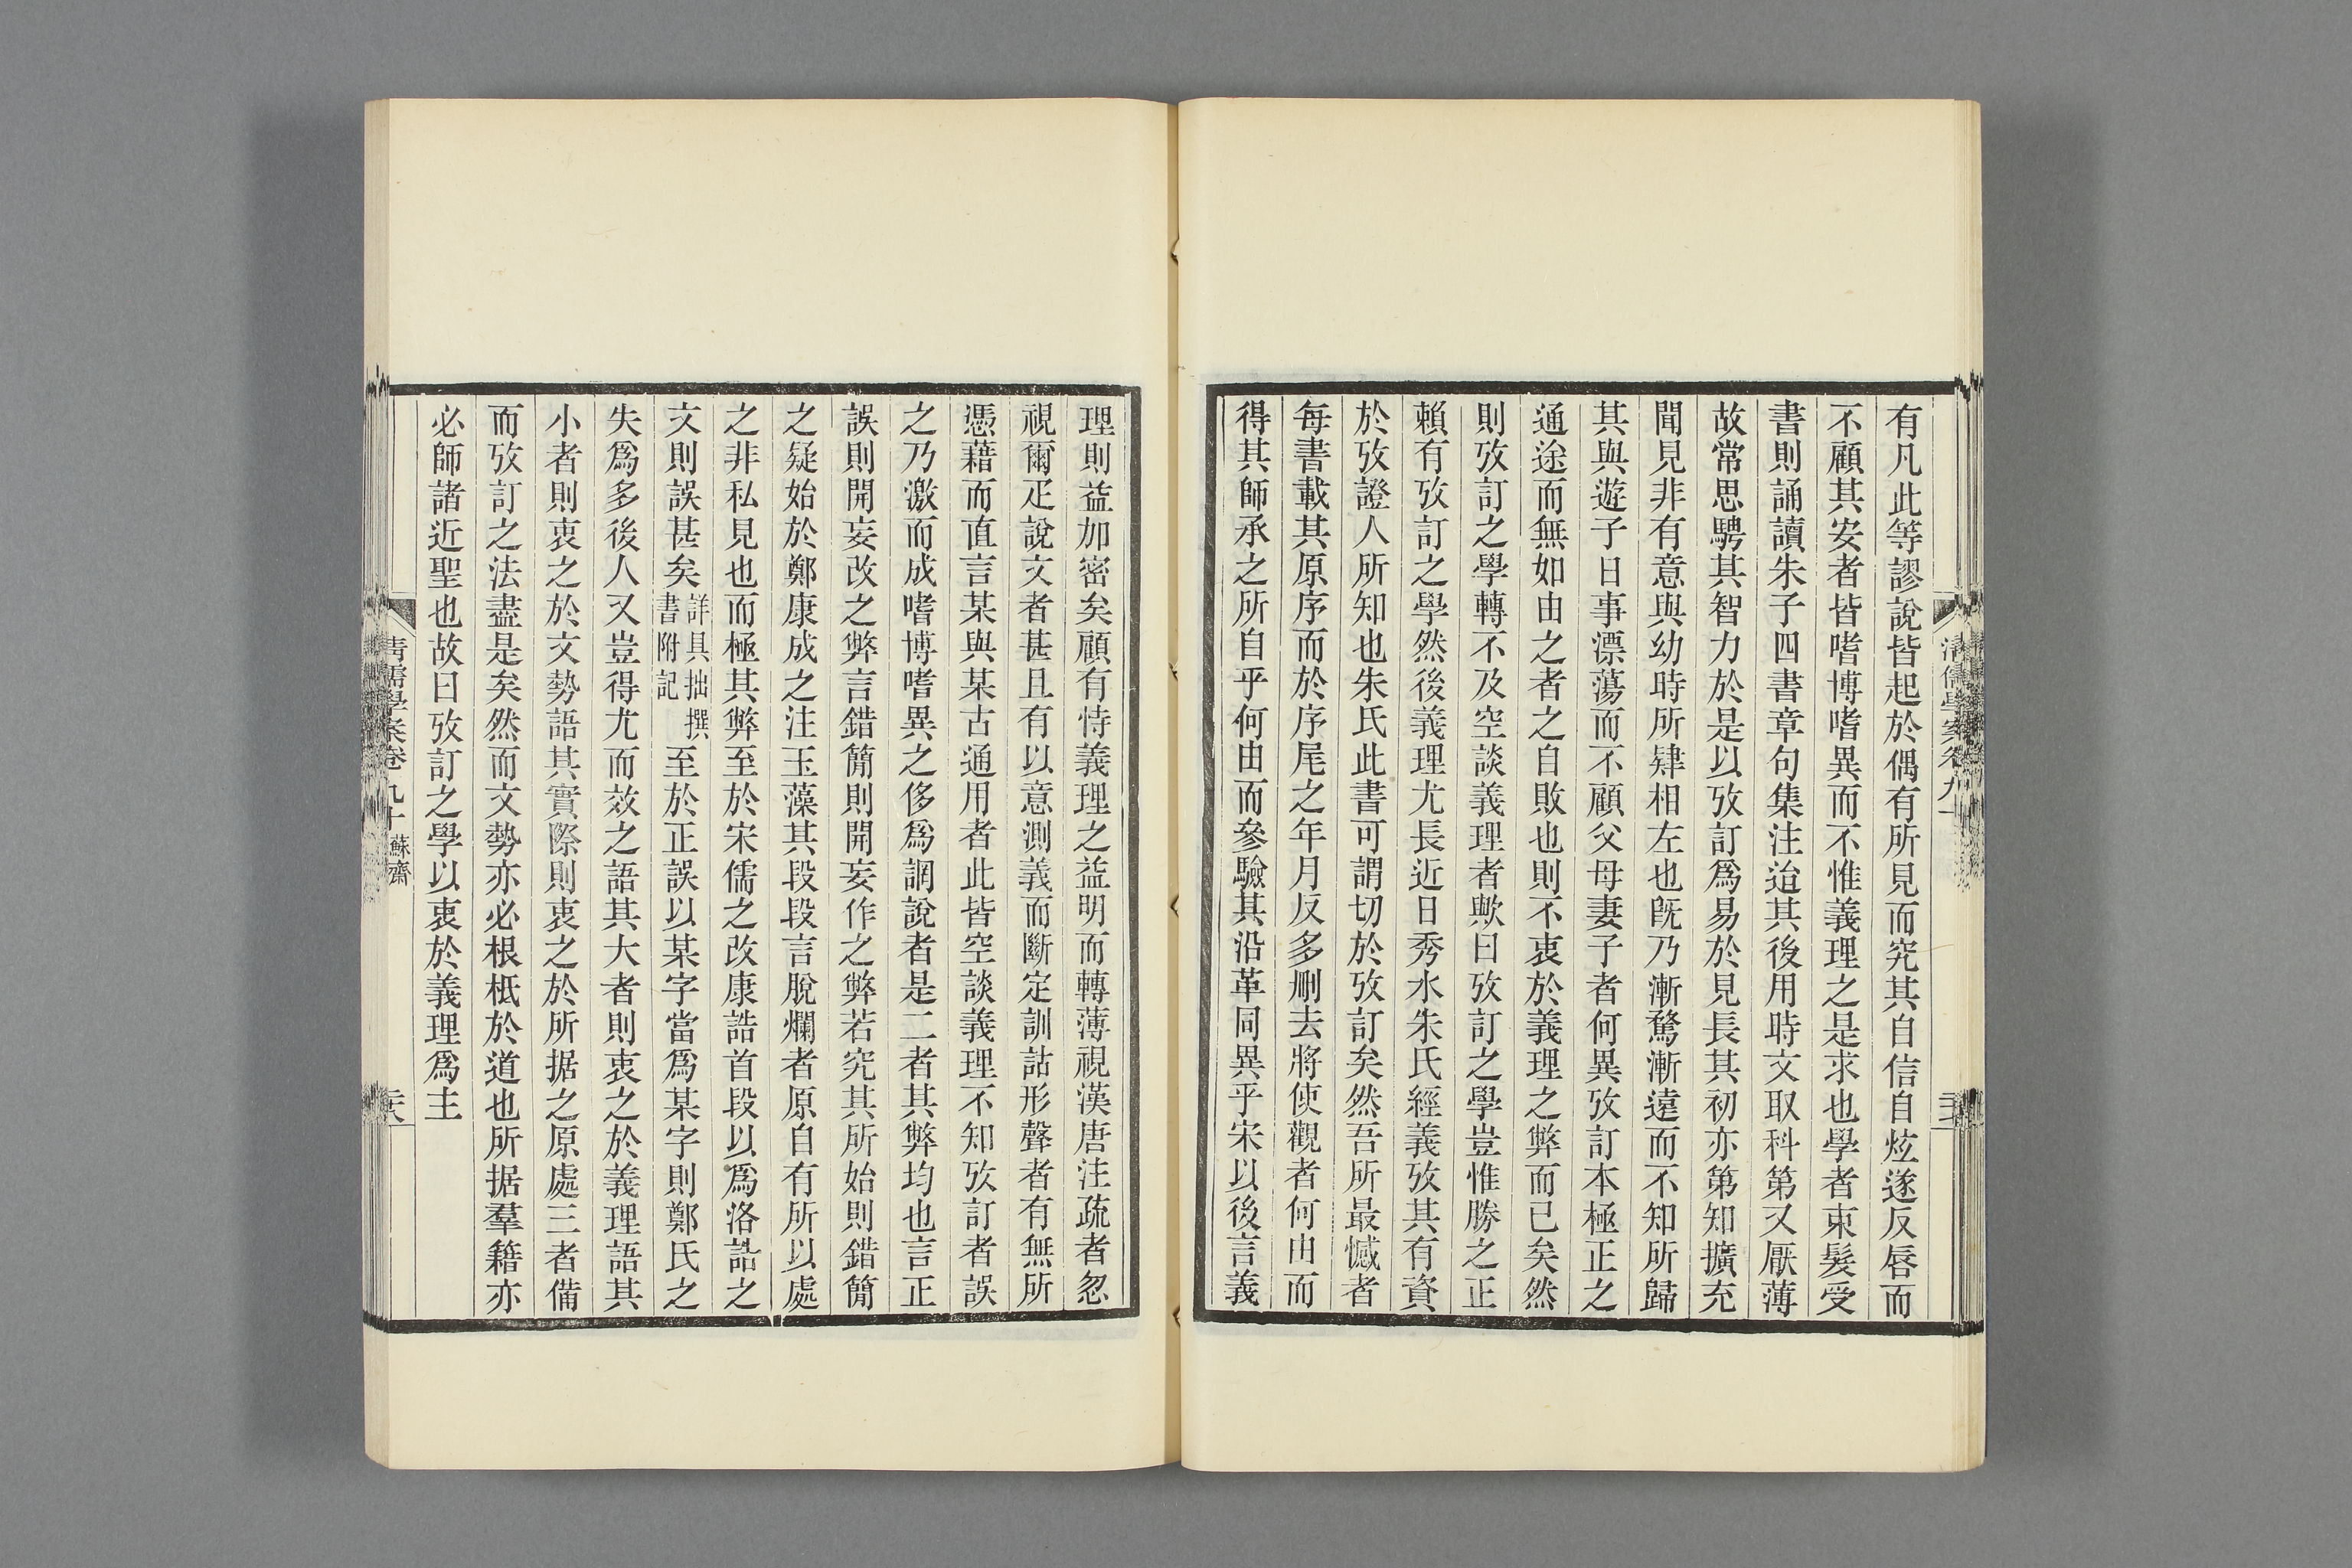 有凡此等謬說皆起於偶有所見而究其自信自炫遂反唇而
不顧其安者皆嗜博嗜異而不惟義理之是求也學者束髮受
書則誦讀朱子四書章句集注迨其後用時文取科第又厭薄
故常思騁其智力於是以攷訂爲易於見長其初亦第知擴充
聞見非有意與幼時所肄相左也旣乃漸騖漸遠而不知所歸
其與遊子日事漂蕩而不顧父母妻子者何異攷訂本極正之
通途而無如由之者之自敗也則不衷於義理之弊而已矣然
則攷訂之學轉不及空談義理者歟曰攷訂之學豈惟勝之正
賴有攷訂之學然後義理尤長近日秀水朱氏經義攷其有資
於攷證人所知也朱氏此書可謂切於攷訂矣然吾所最憾者
每書載其原序而於序尾之年月反多刪去將使觀者何由而
得其師承之所自乎何由而參驗其沿革同異乎宋以後言義
理則益加密矣顧有恃義理之益明而轉薄視漢唐注疏者忽
視爾疋說文者甚且有以意測義而斷定訓詁形聲者有無所
憑藉而直言某與某古通用者此皆空談義理不知攷訂者誤
之乃激而成嗜博嗜異之侈爲調說者是二者其弊均也言正
誤則開妄改之弊言錯簡則開妄作之弊若究其所始則錯簡
之疑始於鄭康成之注玉藻其段段言脫爛者原自有所以處
之非私見也而極其弊至於宋儒之改康誥首段以爲洛誥之
文則誤甚矣詳具拙撰書附記至於正誤以某字當爲某字則鄭氏之
失爲多後人又豈得尤而效之語其大者則衷之於義理語其
小者則衷之於文勢語其實際則衷之於所据之原處三者備
而攷訂之法盡是矣然而文勢亦必根柢於道也所据羣籍亦
必師諸近聖也故曰攷訂之學以衷於義理爲主
清儒學案卷九十 蘇齋